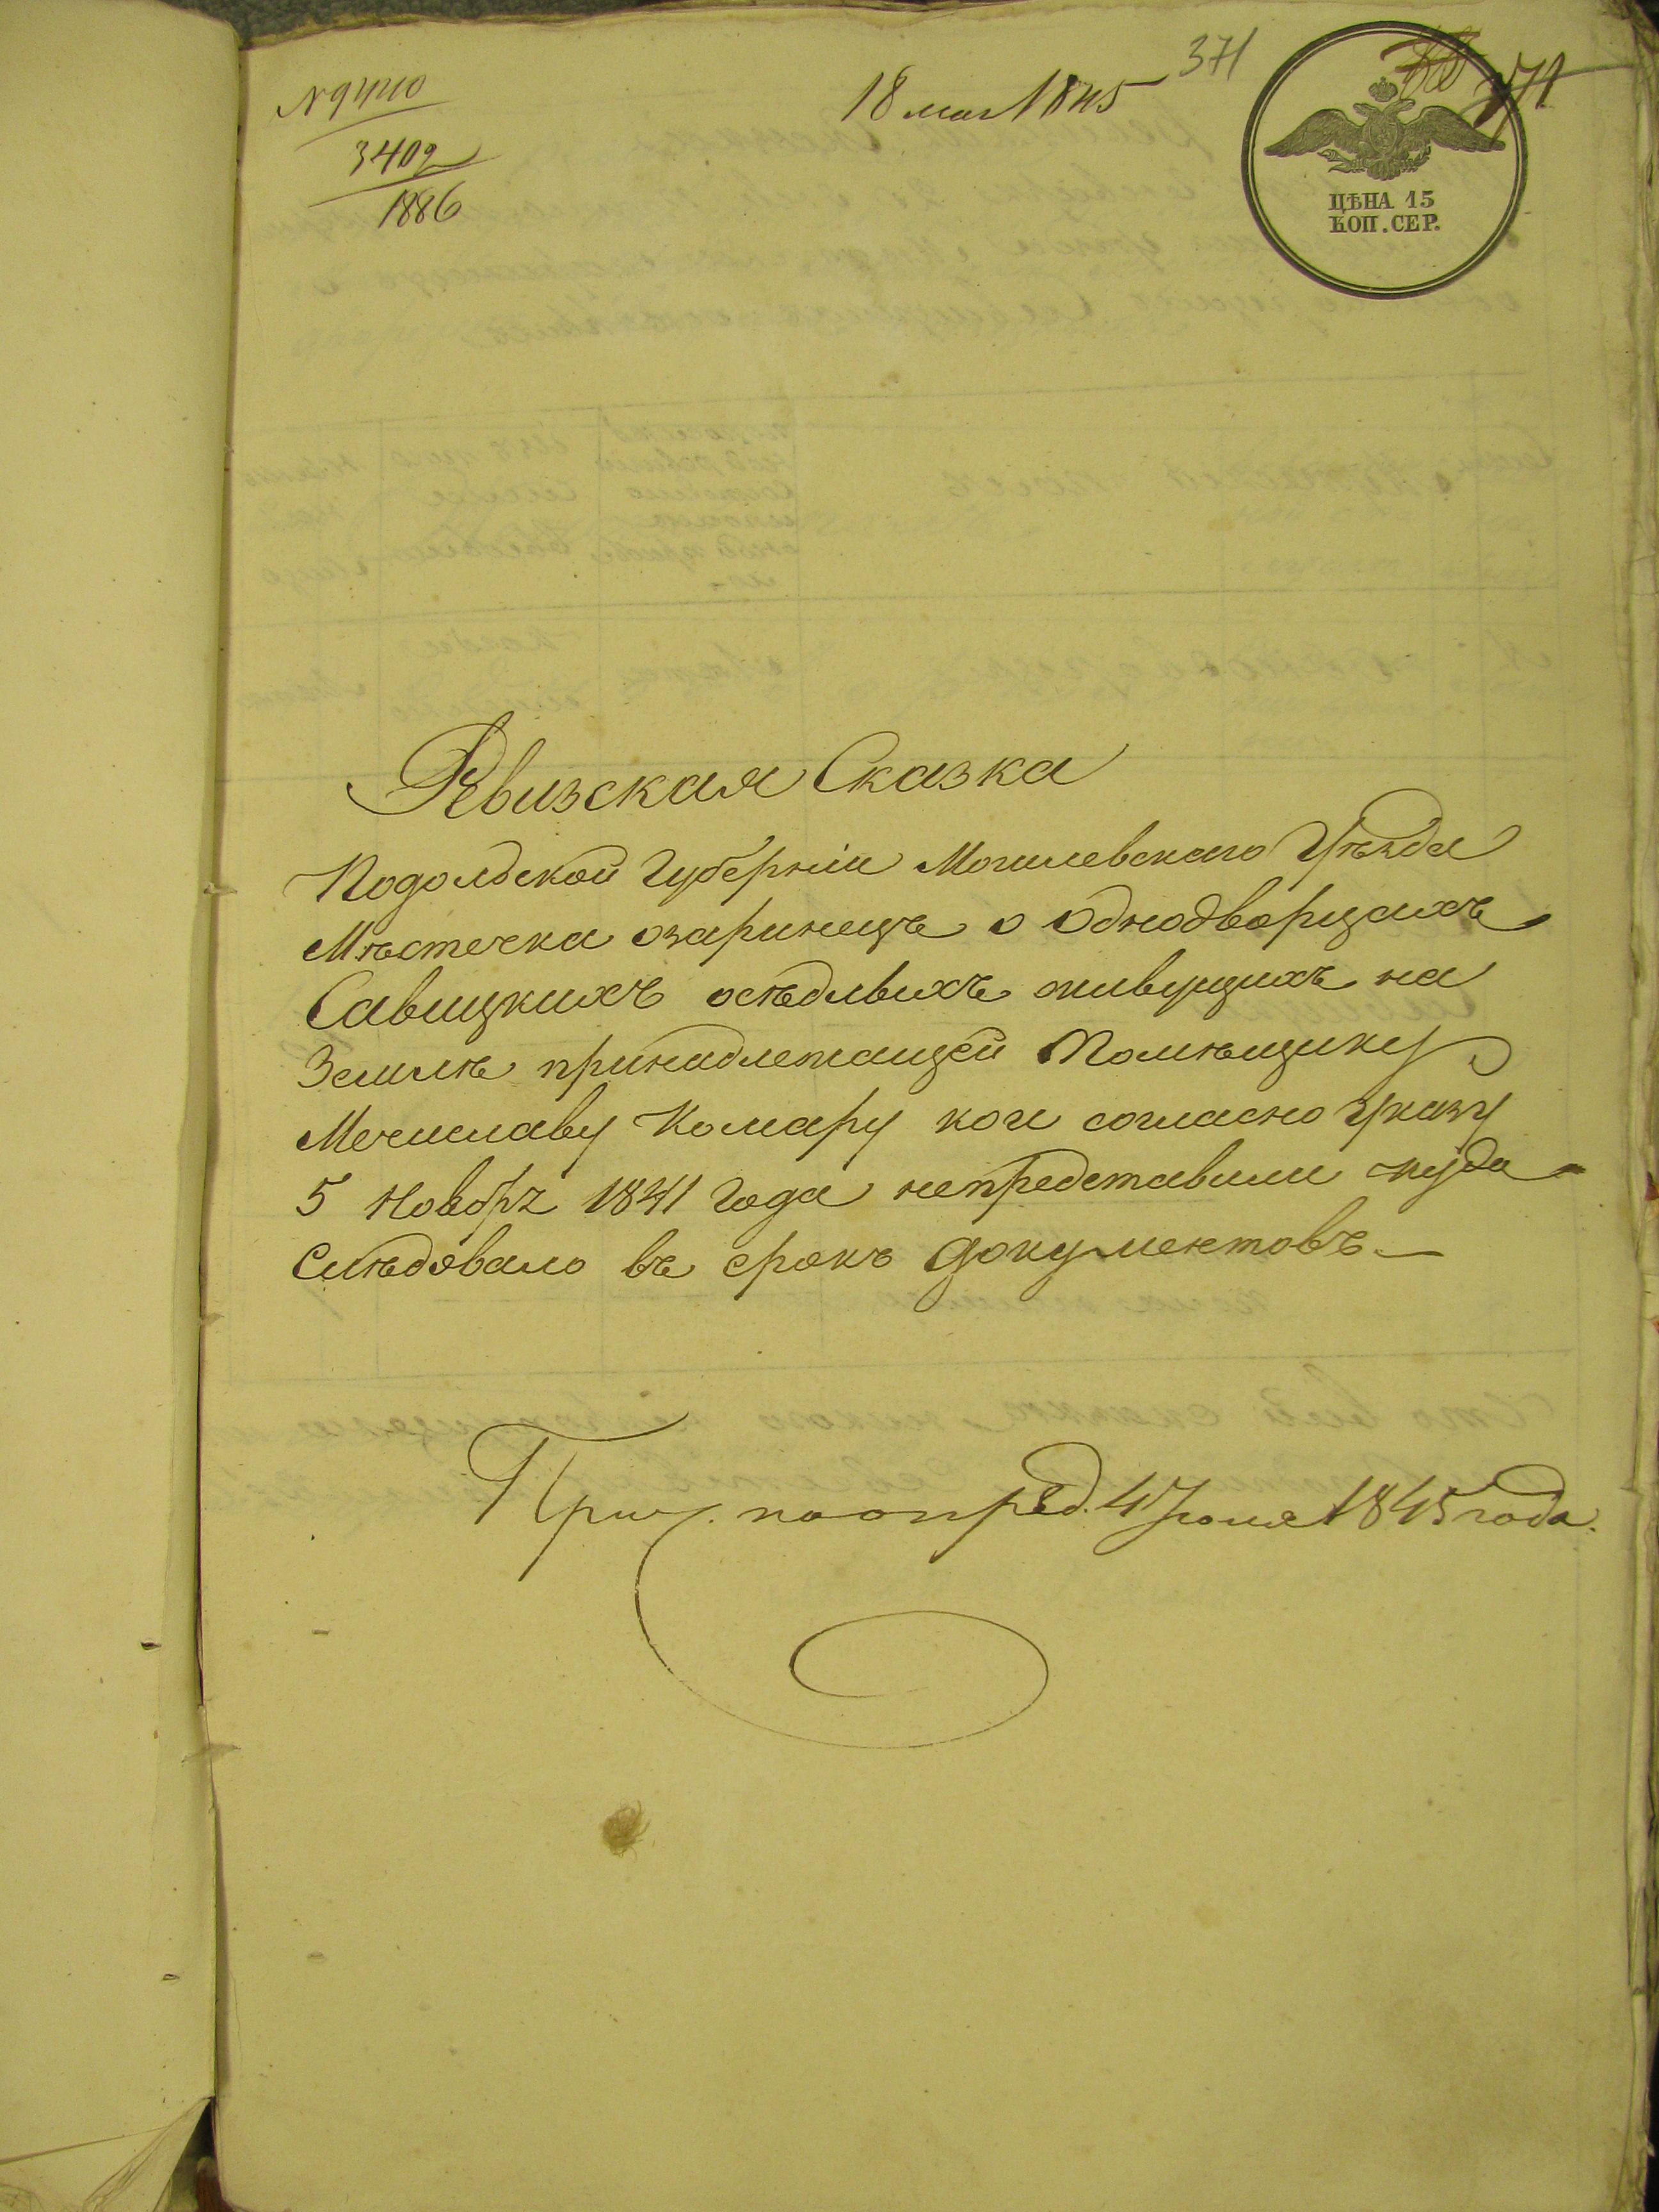 № 9440
3402
1886
18 мая 1845
371
371
ЦѢНА 15
КОП. СЕР.
Ревизская Сказка
Подольской Губерніи Могилевскаго Уѣзда
Мѣстечка озаринецъ о Однодворцахъ
Савицкихъ осѣдлыхъ живущихъ на
Землѣ принадлежащей Помѣщику
Мечиславу Комару кои согласно Указу
5 Ноября 1841 Года непредставили куда
Слѣдовало въ срокъ Документовъ
по опред. 4 Іюня 1845 года.